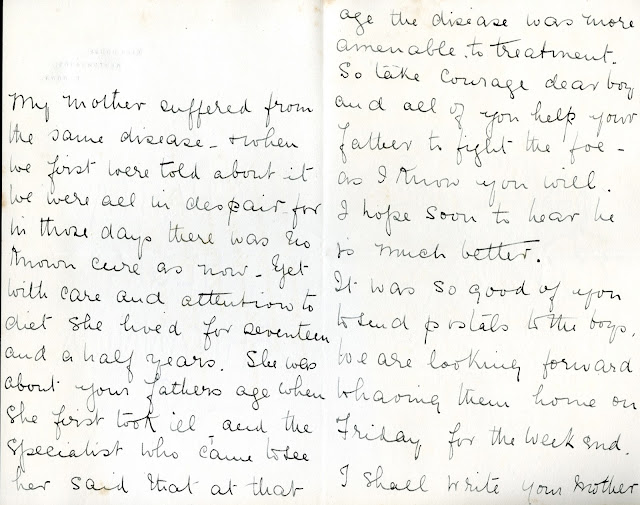 My mother suffered from
the same disease - & when
we first were told about it
we were all in despair for
in those days there was no
known cure as now - Yet
with care and attention to
diet she lived for seventeen
and a half years. She was
about your fathers age when
she first took ill and the
specialist who came to see
her said that at that
age the disease was more
amenable to treatment.
So take courage dear boy
and all of you help your
father to fight the foe -
as I know you will.
I hope soon to hear he
is much better.
It was so good of you
to send postals to the boys.
We are looking forward
to having them home on
Friday for the week end.
I shall write your mother